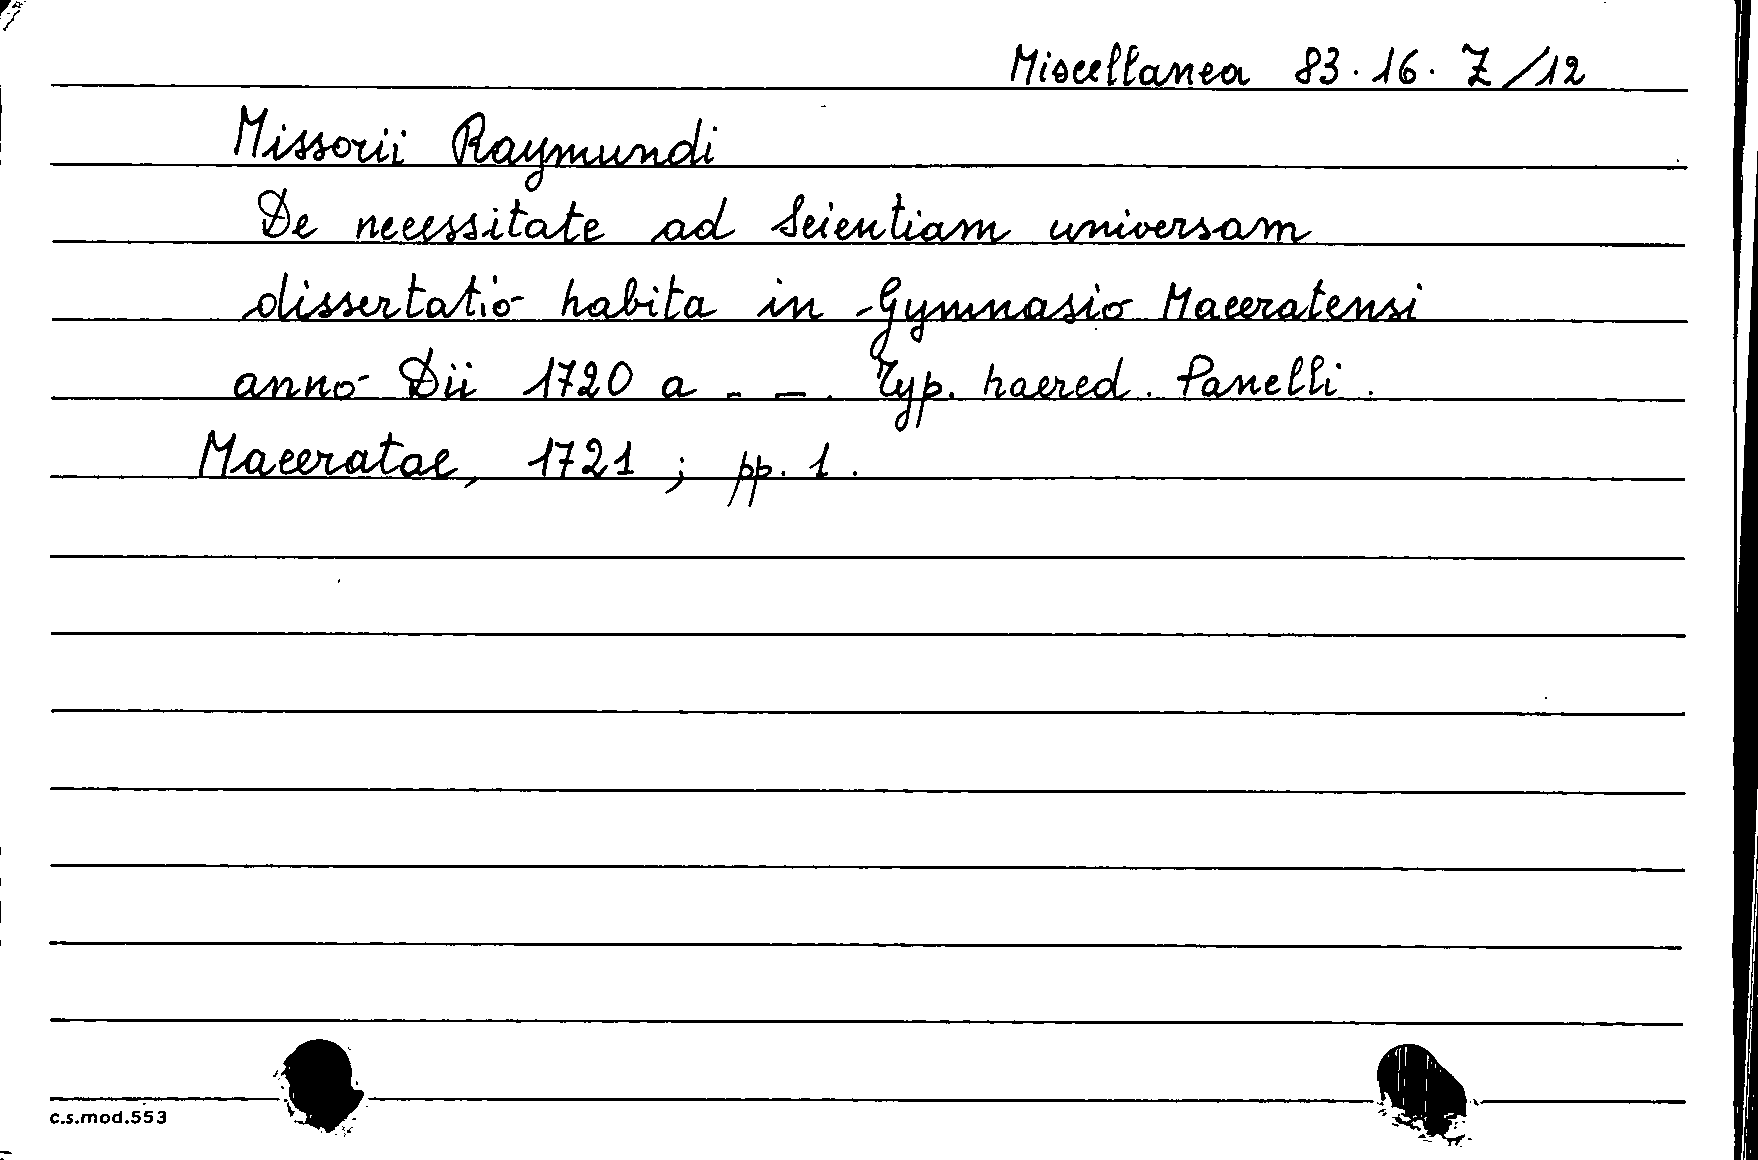 Miscellanea 83.16.Z/12
Missorii Raymundi
De necessitate ad Scientiam universam
dissertatio habita in Gymnasio Maceratensi
anno Dii 1720 a _ _. Typ. haered. Panelli.
Maceratae, 1721 ; pp. 1.
c.s.mod.553